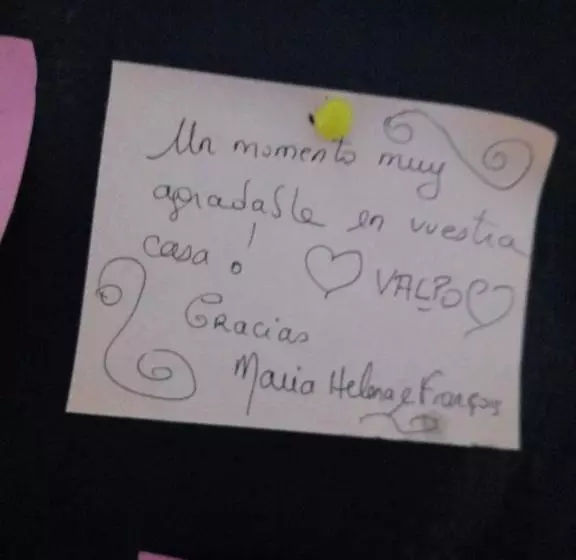 Un momento muy
agradable en vuestra
casa! ♡ VALPO ♡
Gracias
Maria Helena e François